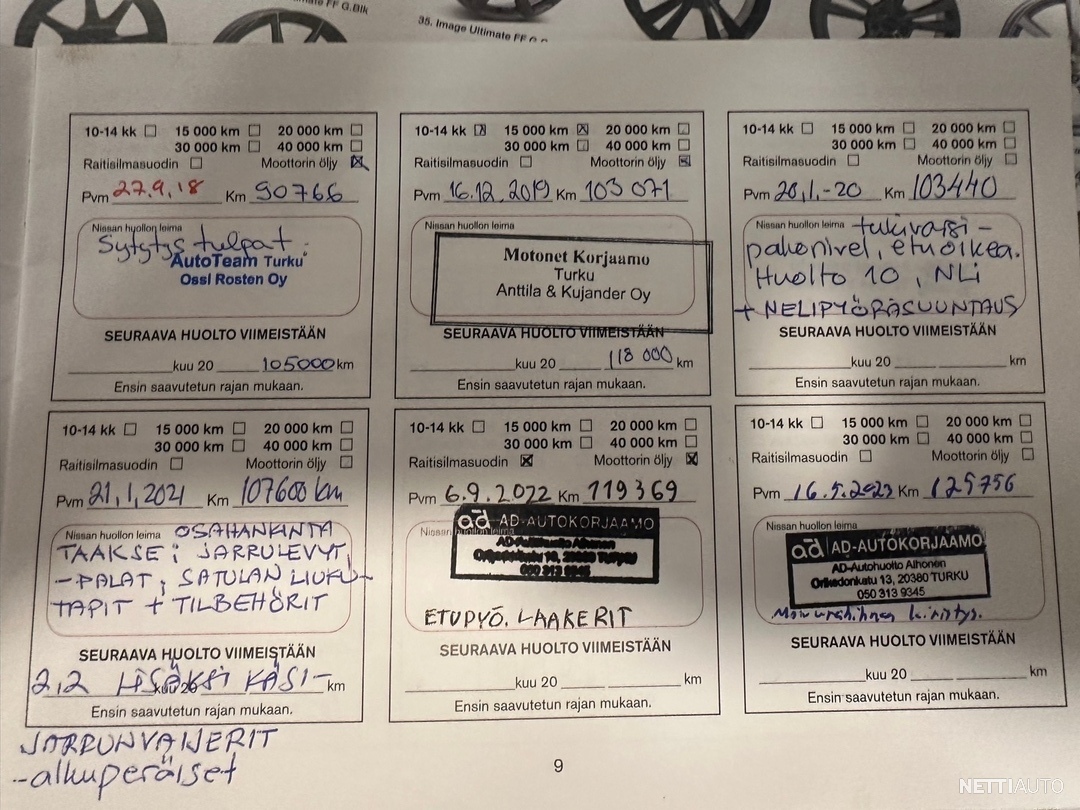 35. Image Ultimate FF
10-14 kk 15 000 km 20 000 km
30 000 km 40 000 km
Raitisilmasuodin Moottorin öljy
Pvm 27.9.18 Km 90766
Nissan huollon leima
Sytytys tulpat.
AutoTeam Turku
Ossi Rosten Oy
SEURAAVA HUOLTO VIIMEISTÄÄN
kuu 20 105000 km
Ensin saavutetun rajan mukaan.
10-14 kk 15 000 km 20 000 km
30 000 km 40 000 km
Raitisilmasuodin Moottorin öljy
Pvm 16.12.2019 Km 103 071
Nissan huollon leima
Motonet Korjaamo
Turku
Anttila & Kujander Oy
SEURAAVA HUOLTO VIIMEISTÄÄN
kuu 20 118 000 km
Ensin saavutetun rajan mukaan.
10-14 kk 15 000 km 20 000 km
30 000 km 40 000 km
Raitisilmasuodin Moottorin öljy
Pvm 20.1.-20 Km 103440
Nissan huollon leima tukivarsi-
pakonivel, etuoikea.
Huolto 10, NLi
+ NELIPYÖRÄSUUNTAUS
SEURAAVA HUOLTO VIIMEISTÄÄN
kuu 20 km
Ensin saavutetun rajan mukaan.
10-14 kk 15 000 km 20 000 km
30 000 km 40 000 km
Raitisilmasuodin Moottorin öljy
Pvm 21.1.2021 Km 107600 km
Nissan huollon leima OSAHANKINTA
TAAKSE; JARRULEVYT,
-PALAT, SATULAN LIUKU-
TAPIT + TILBEHÖRIT
SEURAAVA HUOLTO VIIMEISTÄÄN
2,2 LISÄKSI KÄSI-
kuu 20 km
Ensin saavutetun rajan mukaan.
JARRUNVAIJERIT
-alkuperäiset
10-14 kk 15 000 km 20 000 km
30 000 km 40 000 km
Raitisilmasuodin Moottorin öljy
Pvm 6.9.2022 Km 119369
Nissan huollon leima
ad AD-AUTOKORJAAMO
AD-Autohuolto Alhonen
Orikedonkatu 13, 20380 TURKU
050 313 9345
ETUPYÖ. LAAKERIT
SEURAAVA HUOLTO VIIMEISTÄÄN
kuu 20 km
Ensin saavutetun rajan mukaan.
10-14 kk 15 000 km 20 000 km
30 000 km 40 000 km
Raitisilmasuodin Moottorin öljy
Pvm 16.5.2023 Km 125756
Nissan huollon leima
ad AD-AUTOKORJAAMO
AD-Autohuolto Alhonen
Orikedonkatu 13, 20380 TURKU
050 313 9345
kiristys.
SEURAAVA HUOLTO VIIMEISTÄÄN
kuu 20 km
Ensin saavutetun rajan mukaan.
9
NETTIAUTO